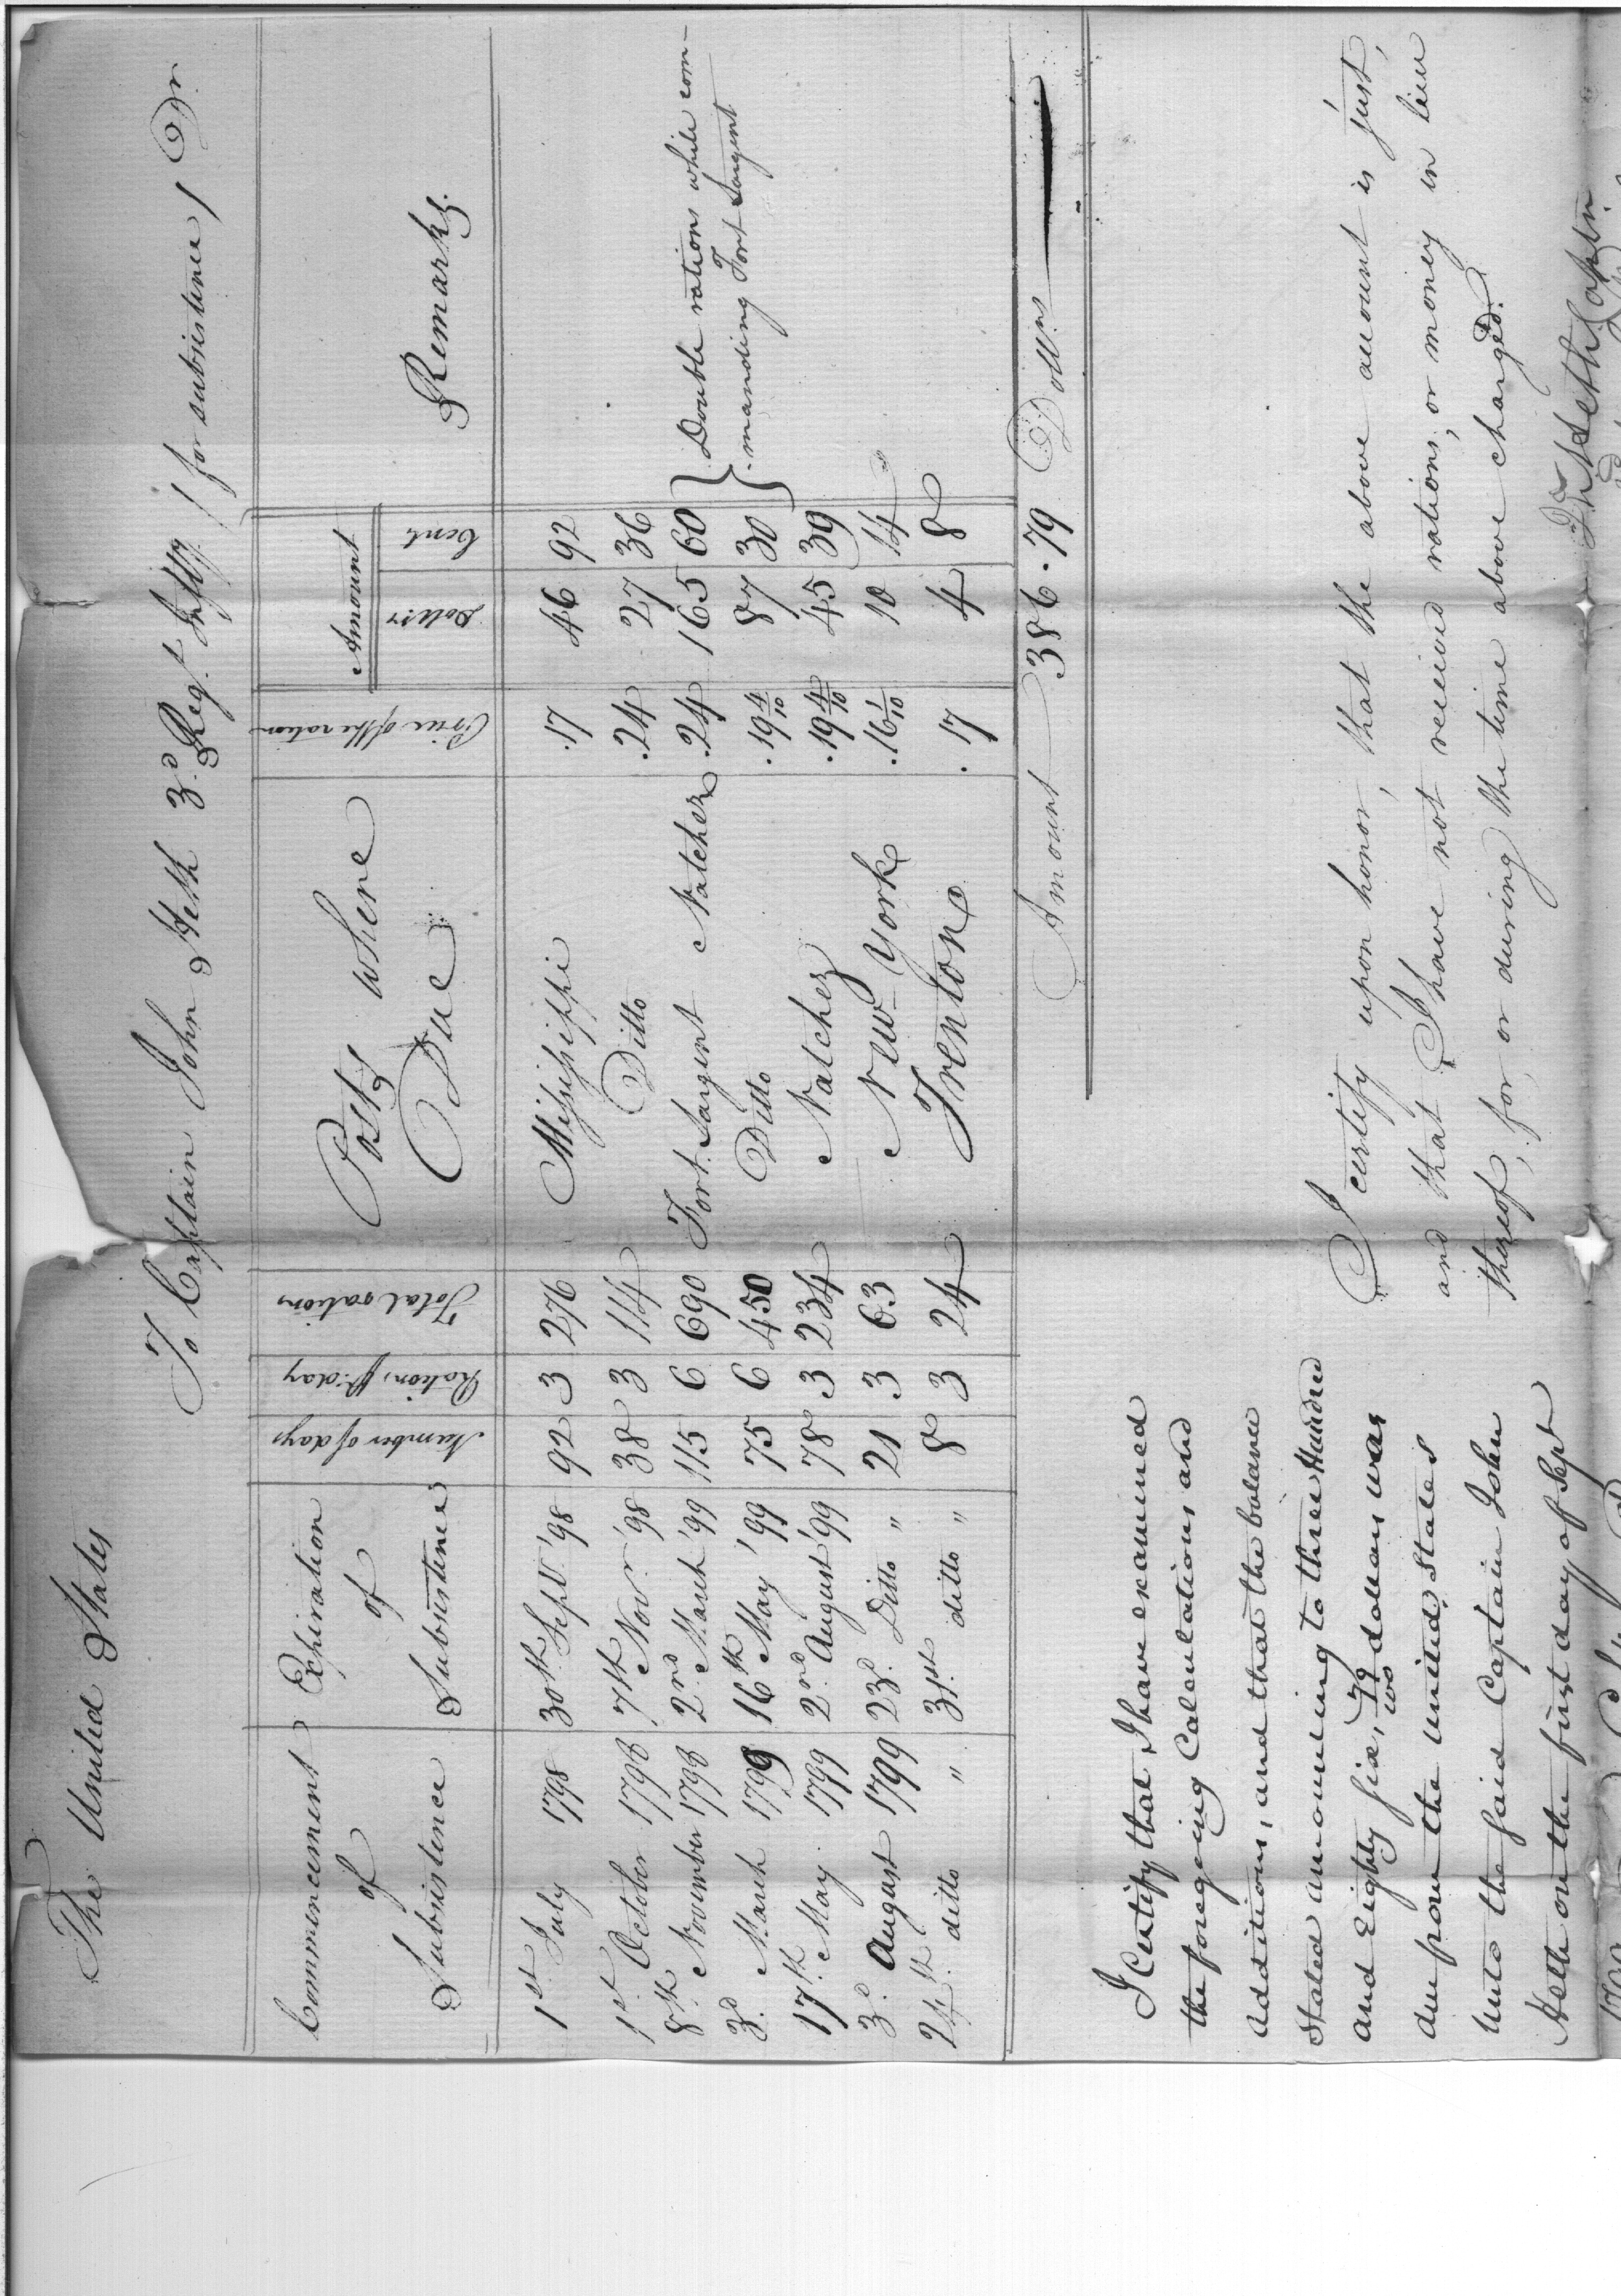 The United States
To Captain John Heth 3d. Regt. Infty. / for subsistence / Dr.
Commencement of Subsistence | Expiration of Subsistence | Number of days | Rations pr. day | Total rations | Posts where Due | Price of the ration | Amount Dollrs Cents | Remarks.
1st. July 1798 | 30th. Sept. '98 | 92 | 3 | 276 | Missisippi | .17 | 46 92
1st. October 1798 | 7th Novr. '98 | 38 | 3 | 114 | Ditto | .24 | 27 36
8th. November 1798 | 2nd. March '99 | 115 | 6 | 690 | Fort Sargent Natchez | .24 | 165 60 } Double rations while com-
3d. March 1799 | 16th May '99 | 75 | 6 | 450 | Ditto | .19 4/10 | 87 30 } manding Fort Sargent
17th. May 1799 | 2nd. August '99 | 78 | 3 | 234 | Natchez | .19 4/10 | 45 39
3d. August 1799 | 23d. Ditto " | 21 | 3 | 63 | New-York | .16 1/10 | 10 14
24th. ditto " | 31st. ditto " | 8 | 3 | 24 | Trenton | .17 | 4 8
Amount 386.79 Dollrs
I Certify that I have examined
the foregoing Calculations and
additions, and that the balance
stated amounting to three Hundred
and Eighty six, 79/100 dollars was
due from the united States
unto the said Captain John
Heth on the first day of Sept
I certify upon honor, that the above account is just,
and that I have not received rations, or money in lieu
thereof, for or during the time above charged.
Jno. Heth Captn